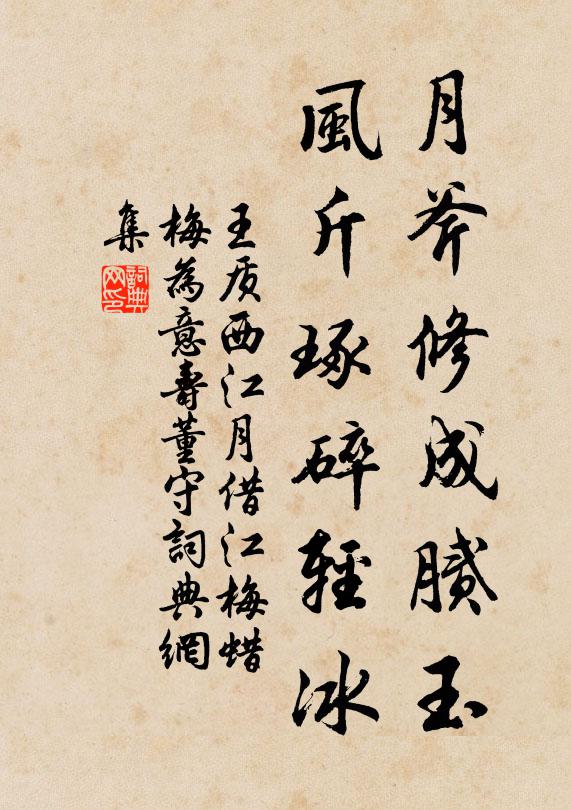 月斧修成腻玉
風斤琢碎輕冰
王质西江月借江梅蜡
梅為意壽董守詞典網
集
詞典
网印